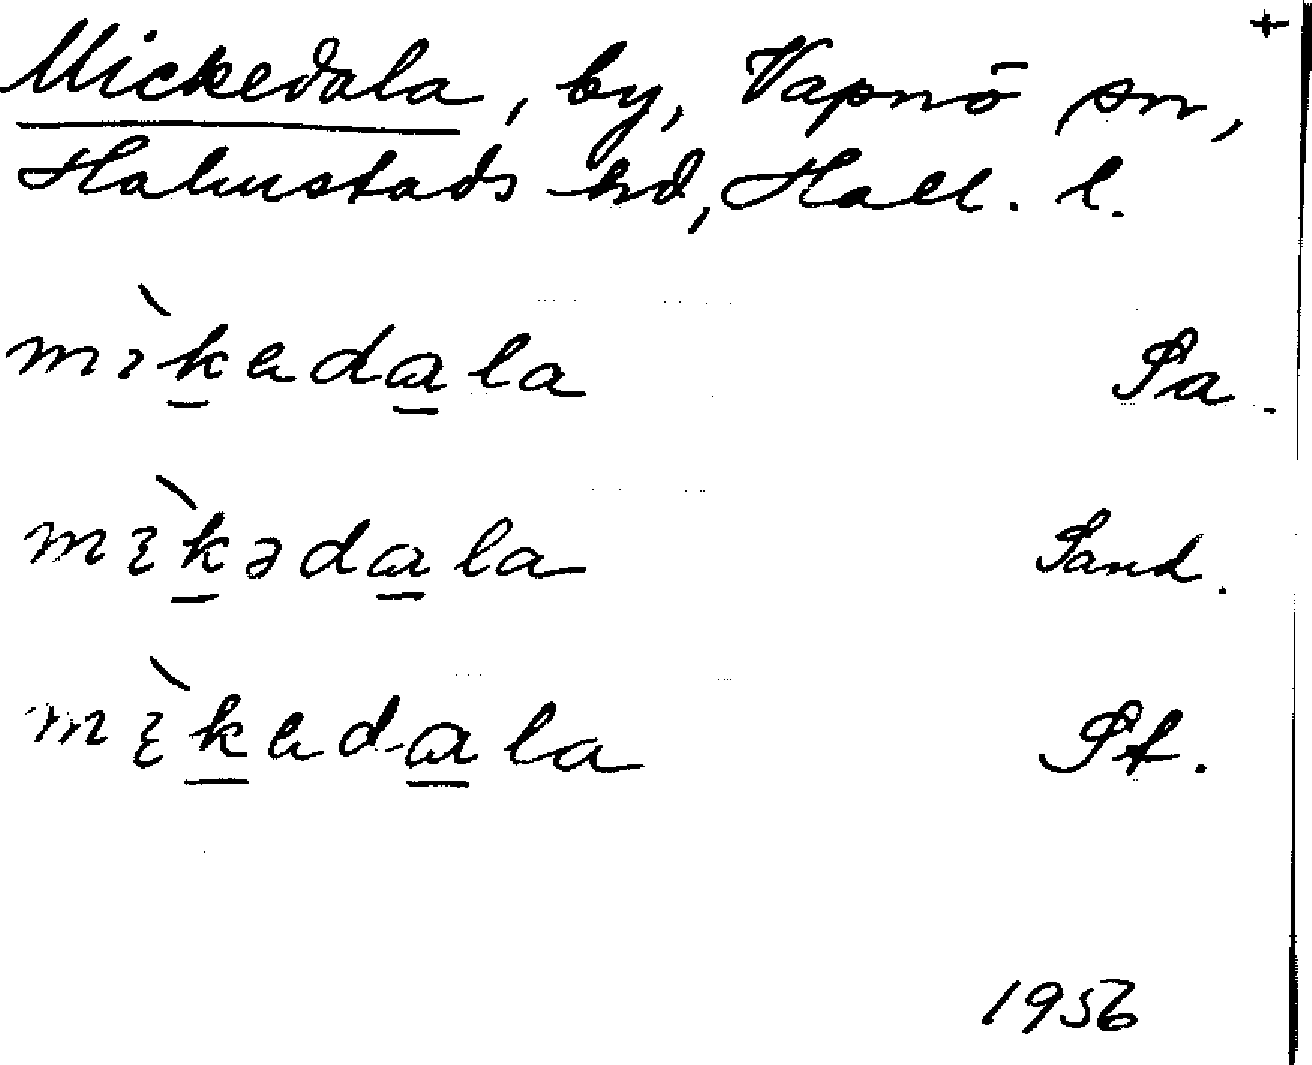 +
Mickedala, by, Vapnö sn,
Halmstads hd, Hall. l.
mìkadala Sa.
mìkədala Sand.
mìkadala St.
1956